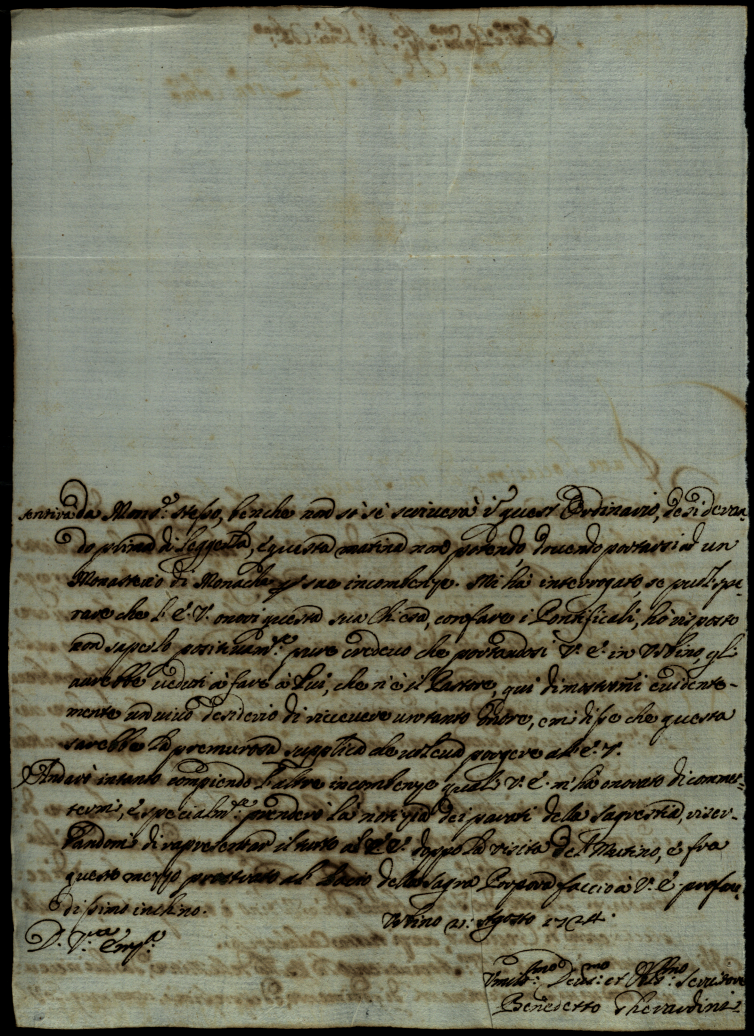 sentirà da Mons.r stesso, benche non sò se scriverà in quest' Ordinario, desideran-
do prima di leggerla, e questa matina non potendo, dovendo portarsi ad un
Monasterio di Monache p sue incombenze. Mi hà interrogato, se puol spe-
rare che l' E. V. onori questa sua Chiesa, co fare i Pontificali, hò risposto
non saperlo positivam.te pure credevo che portandosi V. E. in Urbino, gli
avrebbe veduti a fare à Lui, che n' è il Pastore, qui dimostrom̃i evidente-
mente un vivo desiderio di ricevere un tanto Onore, e mi disse che questa
sarebbe la premurosa supplica che voleva porgere all' E. V.
Andarò intanto compiendo l' altre incombenze quali V. E. m' hà onorato di commet-
termi, e specialm.te prenderò la notizia dei parati della Sagrestia, riser-
bandomi di rapresentar il tutto all' E. V. doppo la visita del Mutino, e fra
questo mezzo prostrato al bacio della Sagra Porpora faccio à V. E. profon-
dissimo inchino.
Urbino 21: Agosto 1724.
D. V.ra Em.za
Umiliss.mo Devot.mo et Obblig.mo Servitore
Benedetto Gherardini